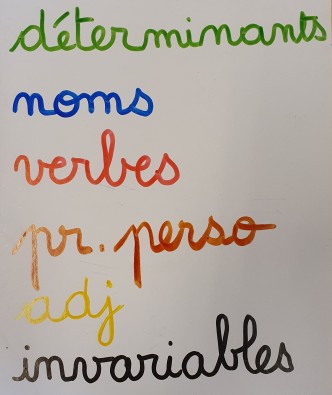 déterminants
noms
verbes
pr. perso
adj
invariables